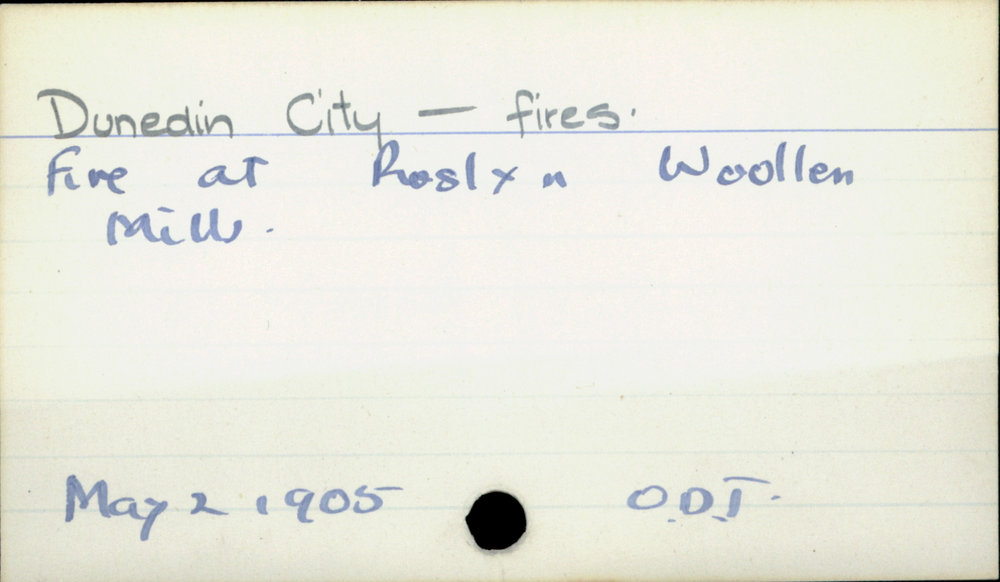 Dunedin City — fires.
Fire at Roslyn Woollen
Mills.
May 2 1905 O.D.T.